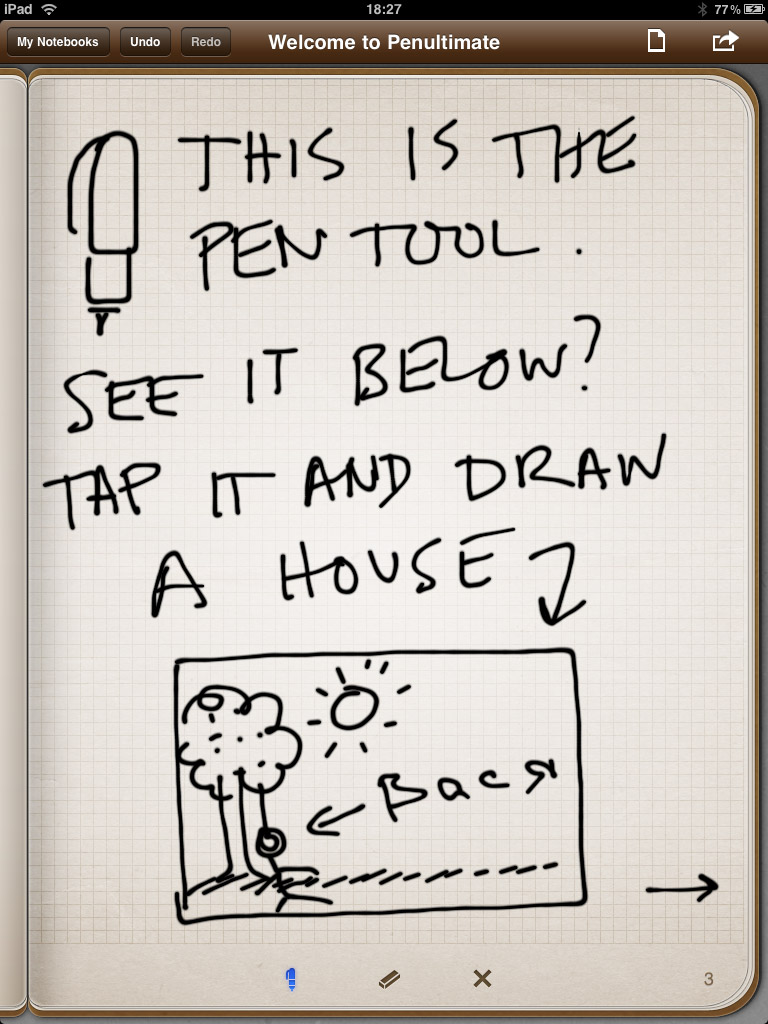 iPad 18:27 77%
My Notebooks Undo Redo Welcome to Penultimate
THIS IS THE
PEN TOOL.
SEE IT BELOW?
TAP IT AND DRAW
A HOUSE
3